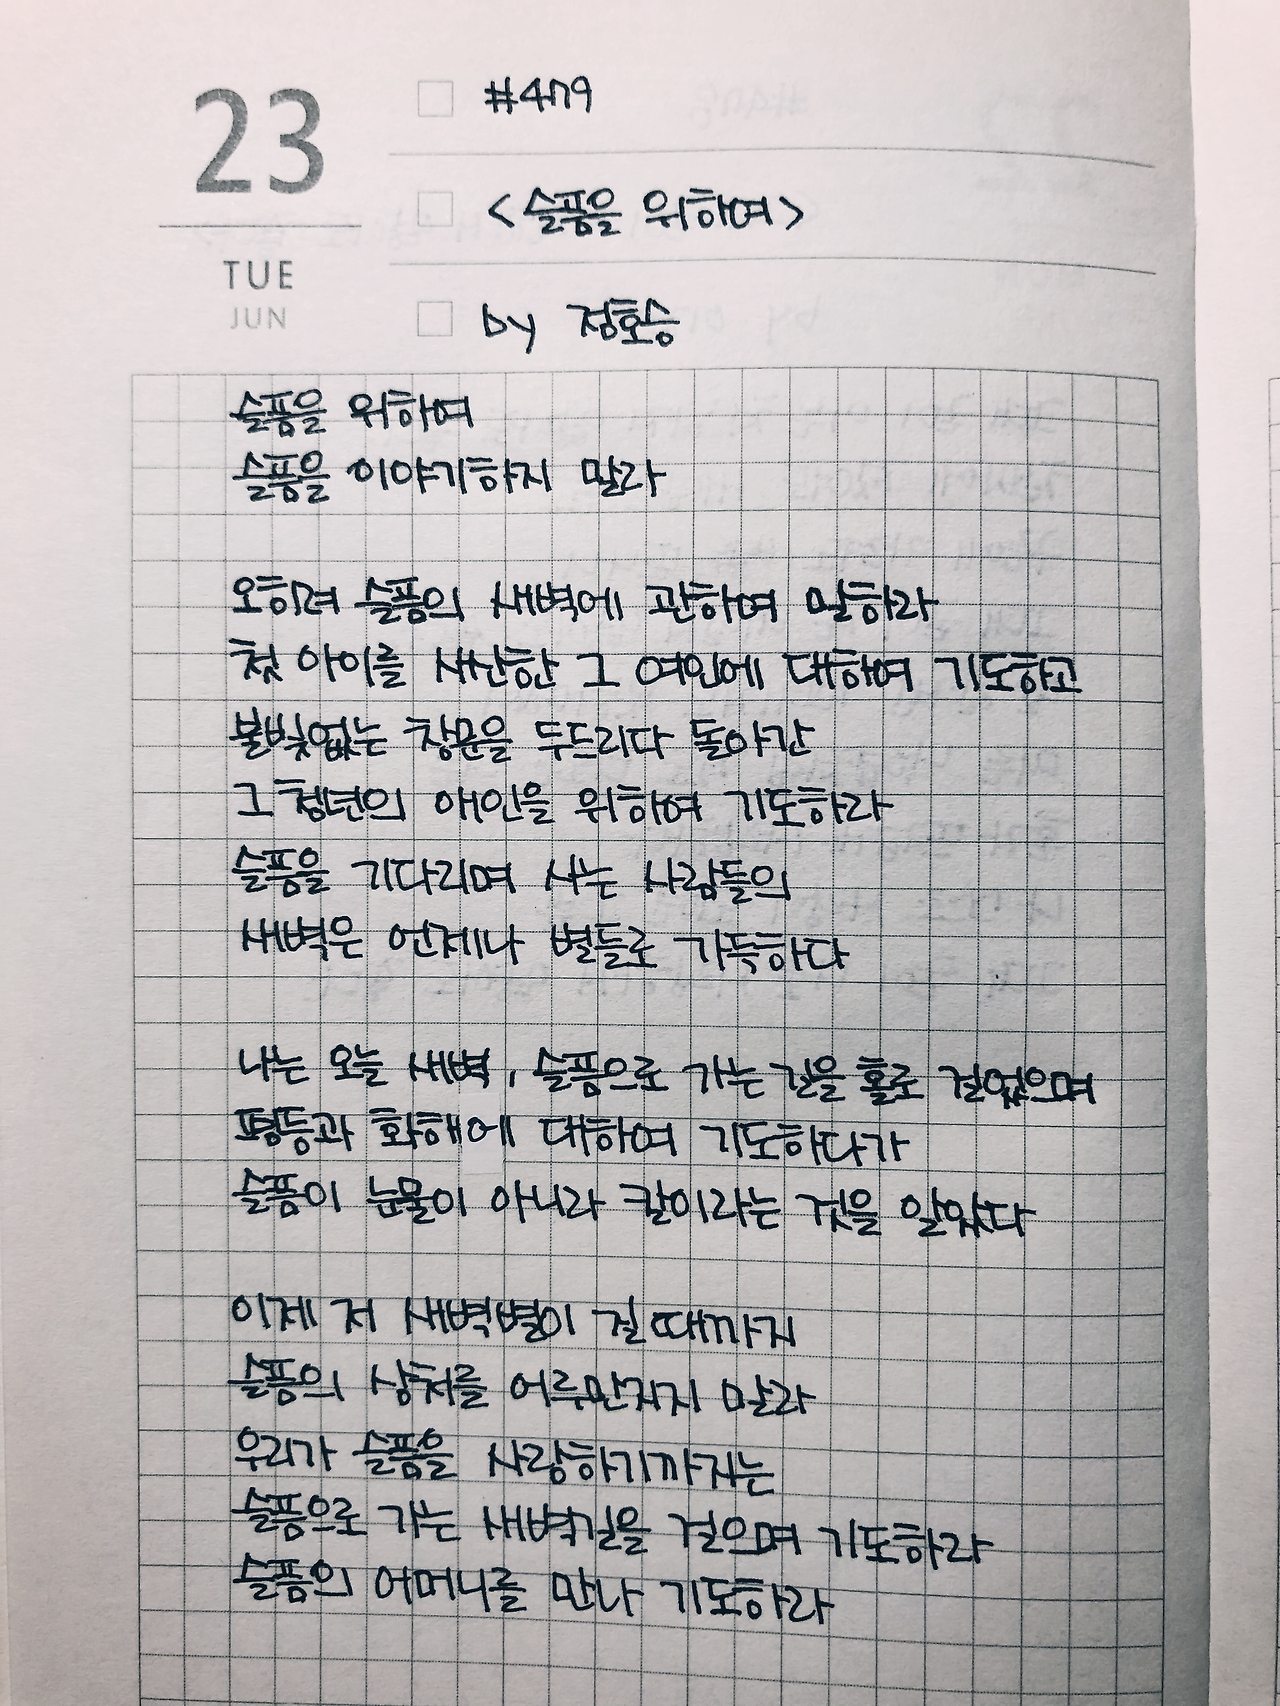 23
TUE
JUN
#479
<슬픔을 위하여>
by 정호승
슬픔을 위하여
슬픔을 이야기하지 말라
오히려 슬픔의 새벽에 관하여 말하라
첫 아이를 사산한 그 여인에 대하여 기도하고
불빛없는 창문을 두드리다 돌아간
그 청년의 애인을 위하여 기도하라
슬픔을 기다리며 사는 사람들의
새벽은 언제나 별들로 가득하다
나는 오늘 새벽, 슬픔으로 가는 길을 홀로 걸었으며
평등과 화해에 대하여 기도하다가
슬픔이 눈물이 아니라 칼이라는 것을 알았다
이제 저 새벽별이 질 때까지
슬픔의 상처를 어루만지지 말라
우리가 슬픔을 사랑하기까지는
슬픔으로 가는 새벽길을 걸으며 기도하라
슬픔의 어머니를 만나 기도하라